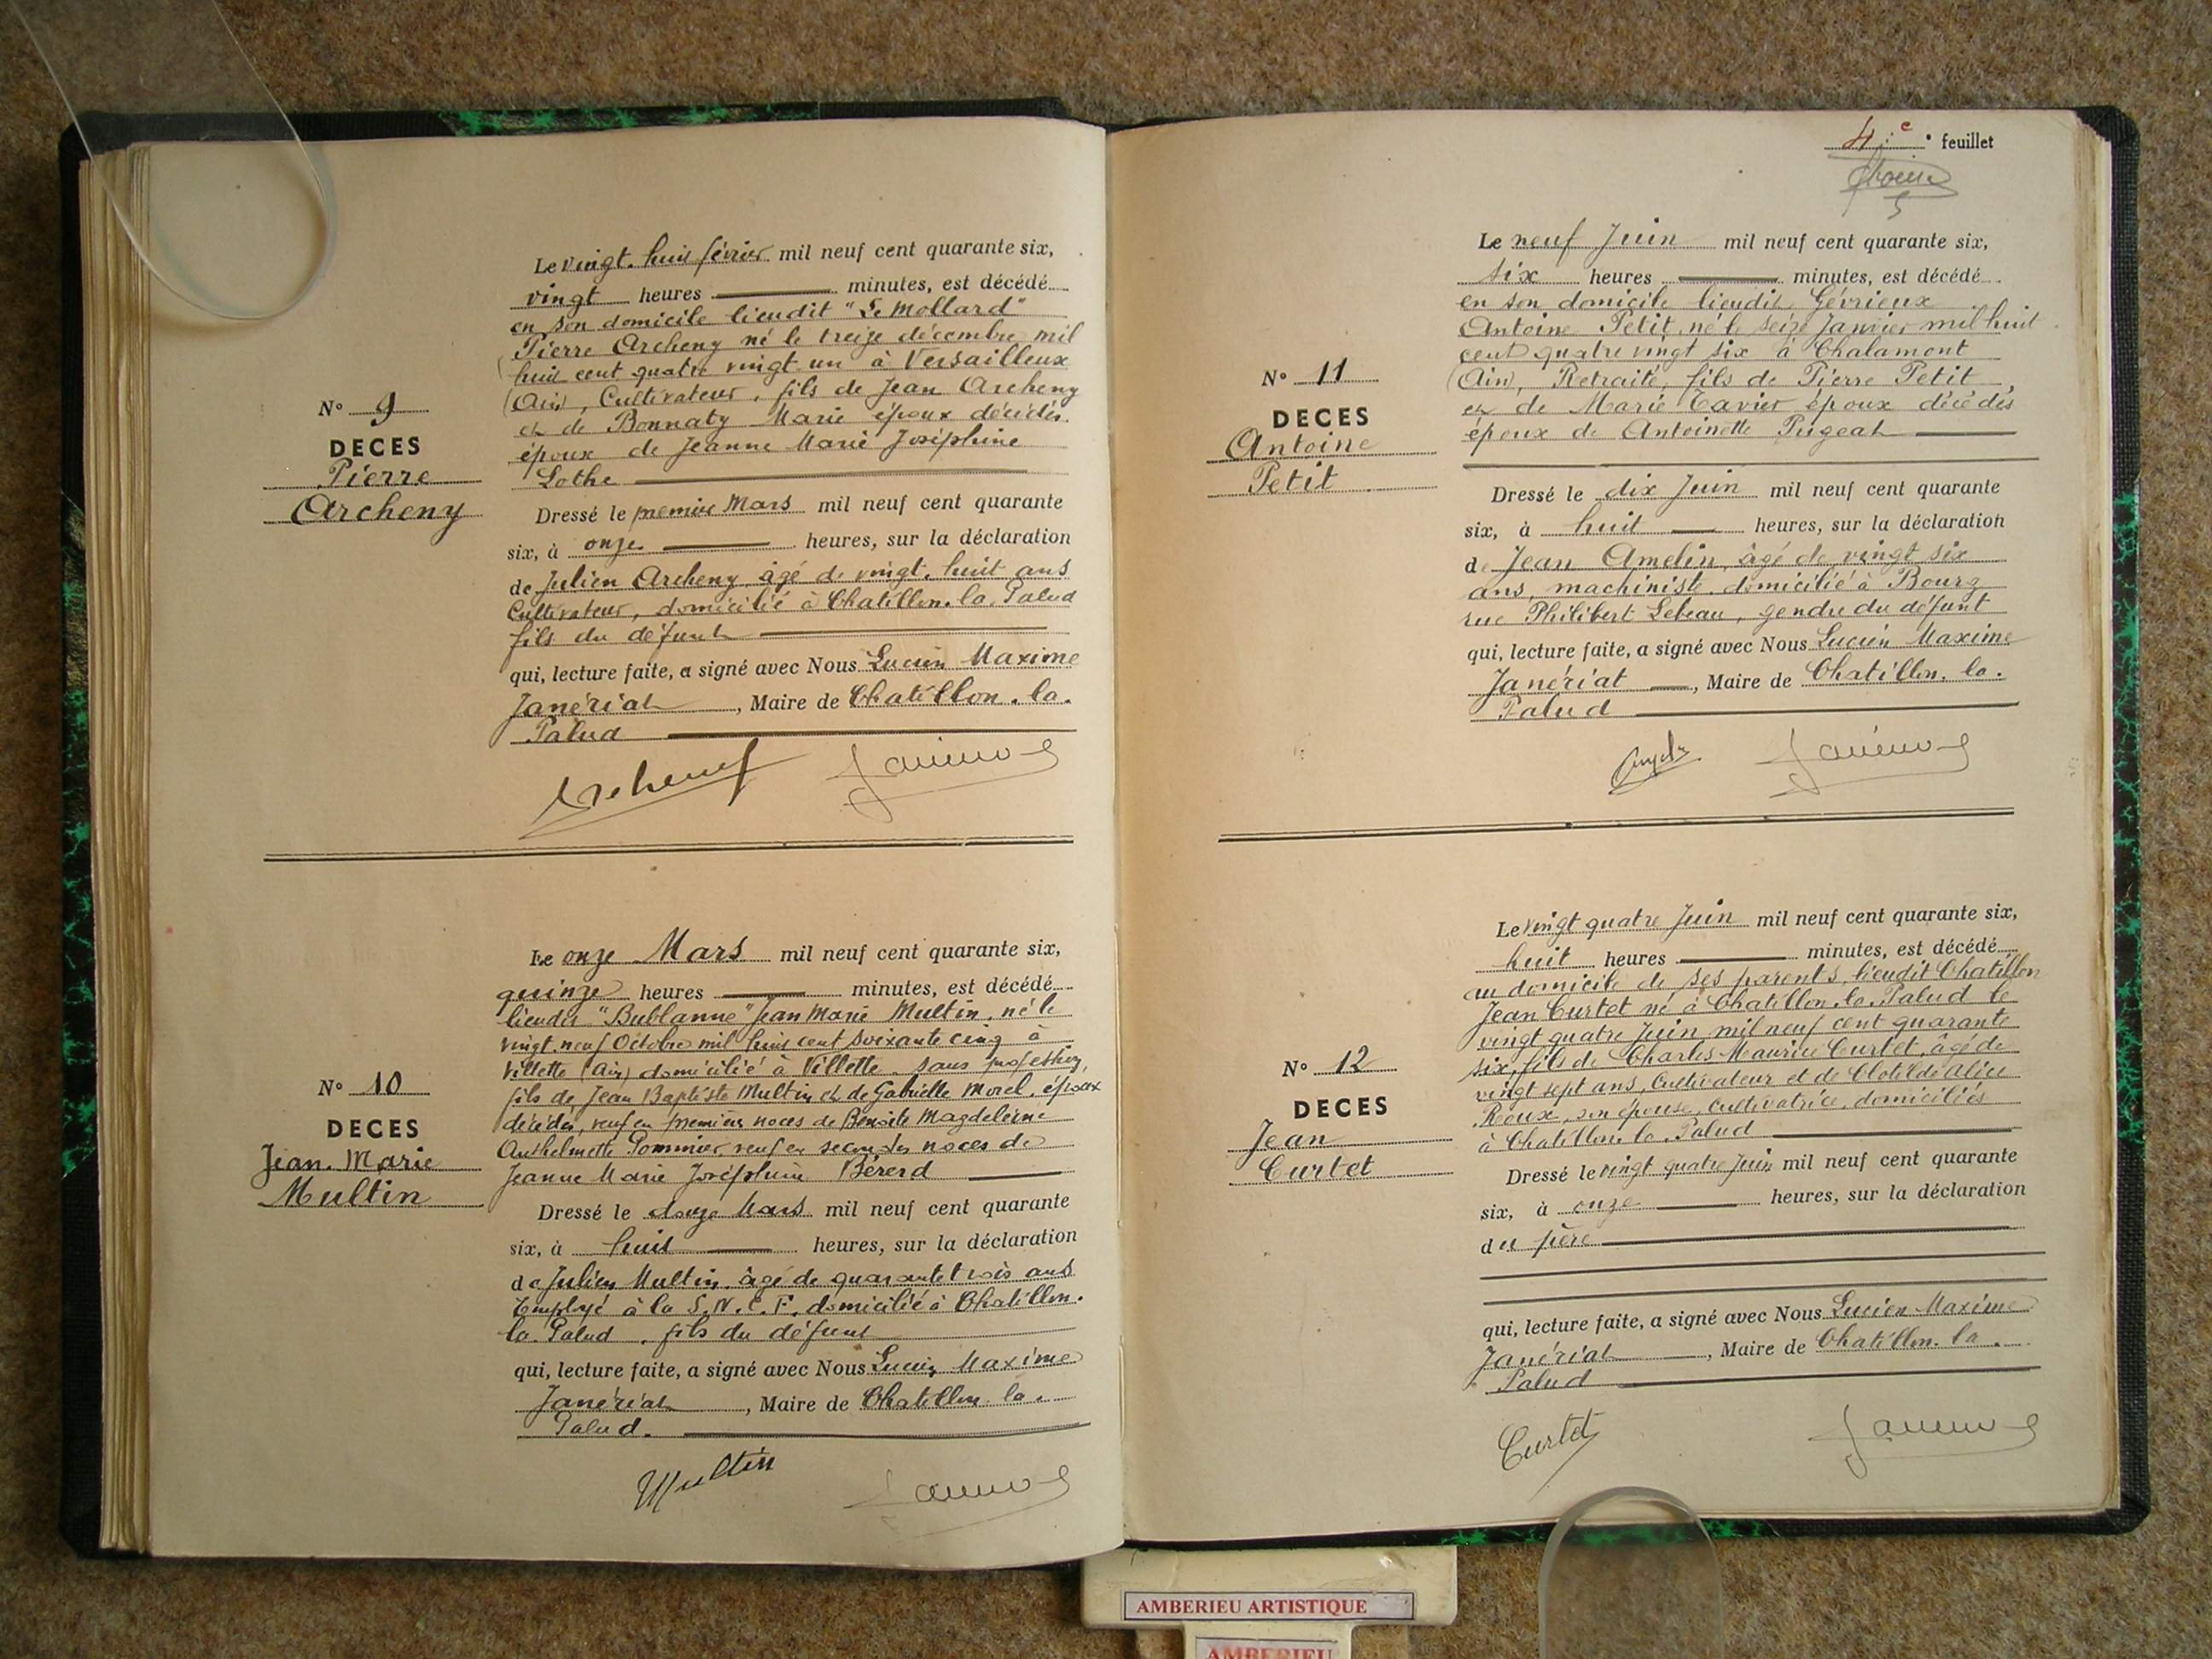 N° 9
DECES
Pierre
Archeny
Le vingt. huit février mil neuf cent quarante six,
vingt heures minutes, est décédé
en son domicile lieudit "Le Mollard"
Pierre Archeny né le treize décembre mil
huit cent quatre vingt un à Versailleux
(Ain), Cultivateur, fils de Jean Archeny
et de Bonnaty Marie époux décédés
époux de Jeanne Marie Joséphine
Lothe
Dressé le premier Mars mil neuf cent quarante
six, à onze heures, sur la déclaration
de Julien Archeny âgé de vingt. huit ans
Cultivateur, domicilié à Chatillon. la. Palud
fils du défunt
qui, lecture faite, a signé avec Nous Lucien Maxime
Janériat, Maire de Chatillon. la.
Palud
Archeny
N° 10
DECES
Jean. Marie
Multin
Le onze Mars mil neuf cent quarante six,
quinze heures minutes, est décédé
lieudit "Bublanne" Jean Marie Multin, né le
vingt. neuf Octobre mil huit cent soixante cinq à
Villette (Ain) domicilié à Villette. sans profession,
fils de Jean Baptiste Multin et de Gabrielle Morel, époux
décédés, veuf en premières noces de Benoite Magdeleine
Anthelmette Pommier, veuf en secondes noces de
Jeanne Marie Joséphine Bérerd
Dressé le douze Mars mil neuf cent quarante
six, à huit heures, sur la déclaration
de Julien Multin, âgé de quarante trois ans
Employé à la S.N.C.F. domicilié à Chatillon.
la. Palud, fils du défunt
qui, lecture faite, a signé avec Nous Lucien Maxime
Janériat, Maire de Chatillon. la.
Palud.
Multin
4e feuillet
N° 11
DECES
Antoine
Petit
Le neuf Juin mil neuf cent quarante six,
six heures minutes, est décédé
en son domicile lieudit Gévrieux
Antoine Petit, né le seize Janvier mil huit
cent quatre vingt six à Chalamont
(Ain), Retraité, fils de Pierre Petit
et de Marie Cavier époux décédés
époux de Antoinette Pugeat
Dressé le dix Juin mil neuf cent quarante
six, à huit heures, sur la déclaration
de Jean Amelin, âgé de vingt six
ans, machiniste, domicilié à Bourg
rue Philibert Lebeau, gendre du défunt
qui, lecture faite, a signé avec Nous Lucien Maxime
Janériat, Maire de Chatillon. la.
Palud
N° 12
DECES
Jean
Curtet
Le vingt quatre Juin mil neuf cent quarante six,
huit heures minutes, est décédé
au domicile de ses parents, lieudit Chatillon
Jean Curtet né à Chatillon. la. Palud le
vingt quatre Juin mil neuf cent quarante
six, fils de Charles Maurice Curtet, âgé de
vingt sept ans, Cultivateur et de Clotilde Alice
Roux, son épouse, Cultivatrice, domiciliés
à Chatillon. la. Palud
Dressé le vingt quatre Juin mil neuf cent quarante
six, à onze heures, sur la déclaration
du père
qui, lecture faite, a signé avec Nous Lucien Maxime
Janériat, Maire de Chatillon. la.
Palud
Curtet
AMBERIEU ARTISTIQUE
AMBERIEU